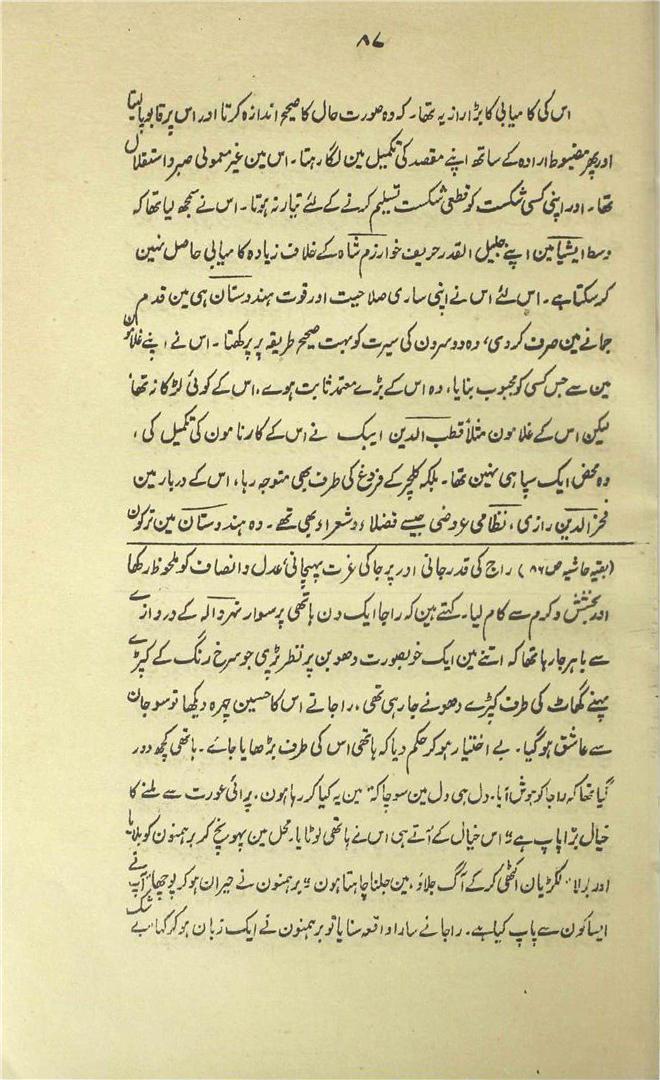 ۸۷
اس کی کامیابی کا بڑا راز یہ تھا۔ کہ وہ صورت حال کا صحیح اندازہ کرتا اور اس پر قابو پالیتا
اور پھر مضبوط ارادہ کے ساتھ اپنے مقصد کی تکمیل مین لگا رہتا۔ اس مین غیر معمولی صبر و استقلال
تھا۔ اور اپنی کسی شکست کو قطعی شکست تسلیم کرنے کے لئے تیار نہ ہوتا۔ اس نے سمجھ لیا تھا کہ
وسط ایشیا مین اپنے جلیل القدر حریف خوارزم شاہ کے خلاف زیادہ کامیابی حاصل نہین
کر سکتا ہے۔ اس لئے اس نے اپنی ساری صلاحیت اور قوت ہندوستان ہی مین قدم
جانے مین صرف کر دی، وہ دوسرون کی سیرت کو بہت صحیح طریقہ پر پرکھتا۔ اس نے اپنے غلامون
مین سے جس کسی کو محبوب بنایا، وہ اس کے بڑے معتمد ثابت ہوے، اس کے کوئی لڑکا نہ تھا
لیکن اس کے غلامون مثلاً قطب الدین ایبک نے اس کے کارنامون کی تکمیل کی،
وہ محض ایک سپاہی نہین تھا۔ بلکہ کلچر کے فروغ کی طرف بھی متوجہ رہا، اس کے دربار مین
فخر الدین رازی، نظامی عروضی جیسے فضلاء و شعراء بھی تھے۔ وہ ہندوستان مین ترکون
(بقیہ حاشیہ ص ۸۶) راج کی قدر جانی اور پرجا کی عزت پہچانی عدل و انصاف کو ملحوظ رکھا
اور بخشش و کرم سے کام لیا۔ کہتے ہین کہ راجا ایک دن ہاتھی پر سوار نہروالہ کے دروازے
سے باہر جا رہا تھا کہ اتنے مین ایک خوبصورت دھوبن پر نظر پڑی جو سرخ رنگ کے کپڑے
پہنے گھاٹ کی طرف کپڑے دھونے جا رہی تھی، راجا نے اس کا حسین چہرہ دیکھا تو سو جان
سے عاشق ہو گیا۔ بے اختیار ہو کر حکم دیا کہ ہاتھی اس کی طرف بڑھایا جائے۔ ہاتھی کچھ دور
گیا تھا کہ راجا کو ہوش آیا۔ دل ہی دل مین سوچا کہ "مین یہ کیا کر رہا ہون۔ پرائی عورت سے ملنے کا
خیال بڑا پاپ ہے" اس خیال کے آتے ہی اس نے ہاتھی لوٹایا۔ محل مین پہونچ کر برہمنون کو بلایا
اور بولا "لکڑیان اکٹھی کر کے آگ جلاؤ، مین جلنا چاہتا ہون" برہمنون نے حیران ہو کر پوچھا "آپ نے
ایسا کون سے پاپ کیا ہے۔ راجا نے سارا واقعہ سنایا تو برہمنون نے ایک زبان ہو کر کہا بے شک